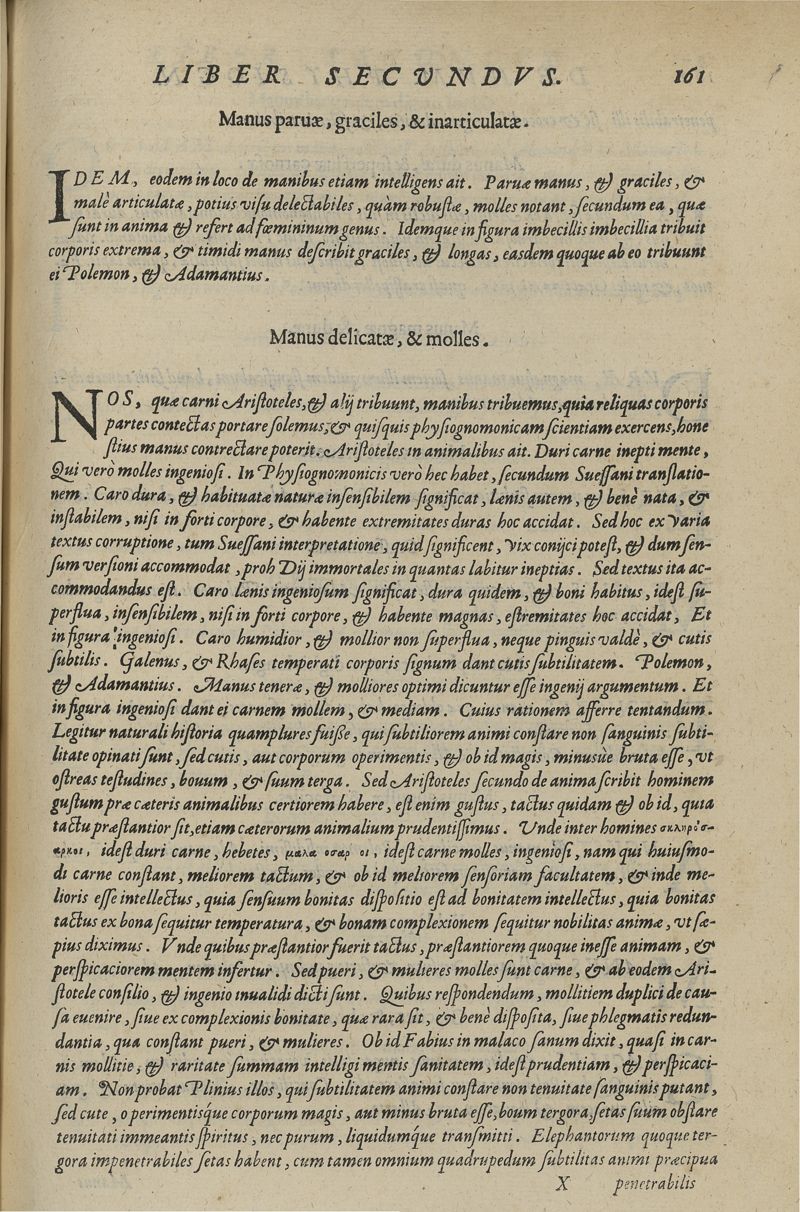 LIBER SECVNDVS. 161
Manus paruæ, graciles, & inarticulatæ.
IDEM, eodem in loco de manibus etiam intelligens ait. Paruæ manus, & graciles, &
malè articulatæ, potius visu delectabiles, quàm robustæ, molles notant, secundum ea, quæ
sunt in anima & refert ad fœmininum genus. Idemque in figura imbecillis imbecillia tribuit
corporis extrema, & timidi manus describit graciles, & longas, easdem quoque ab eo tribuunt
ei Polemon, & Adamantius.
Manus delicatæ, & molles.
NOS, quæ carni Aristoteles, & alij tribuunt, manibus tribuemus, quia reliquas corporis
partes contectas portare solemus, & quisquis physiognomonicam scientiam exercens, hone
stius manus contrectare poterit. Aristoteles in animalibus ait. Duri carne inepti mente,
Qui verò molles ingeniosi. In Physiognomonicis verò hec habet, secundum Suessani translatio-
nem. Caro dura, & habituatæ naturæ insensibilem significat, lænis autem, & benè nata, &
instabilem, nisi in forti corpore, & habente extremitates duras hoc accidat. Sed hoc ex varia
textus corruptione, tum Suessani interpretatione, quid significent, vix conijci potest, & dum sen-
sum versioni accommodat, proh Dij immortales in quantas labitur ineptias. Sed textus ita ac-
commodandus est. Caro lænis ingeniosum significat, dura quidem, & boni habitus, idest su-
perflua, insensibilem, nisi in forti corpore, & habente magnas, estremitates hoc accidat, Et
in figura ingeniosi. Caro humidior, & mollior non superflua, neque pinguis valdè, & cutis
subtilis. Galenus, & Rhases temperati corporis signum dant cutis subtilitatem. Polemon,
& Adamantius. Manus teneræ, & molliores optimi dicuntur esse ingenij argumentum. Et
in figura ingeniosi dant ei carnem mollem, & mediam. Cuius rationem afferre tentandum.
Legitur naturali historia quamplures fuisse, qui subtiliorem animi constare non sanguinis subti-
litate opinati sunt, sed cutis, aut corporum operimentis, & ob id magis, minusùe bruta esse, vt
ostreas testudines, bouum, & suum terga. Sed Aristoteles secundo de anima scribit hominem
gustum præ cæteris animalibus certiorem habere, est enim gustus, tactus quidam & ob id, quia
tactu præstantior sit, etiam cæterorum animalium prudentissimus. Vnde inter homines σκληρόσ-
αρκοι, idest duri carne, hebetes, μαλα οσαρ οι, idest carne molles, ingeniosi, nam qui huiusmo-
di carne constant, meliorem tactum, & ob id meliorem sensoriam facultatem, & inde me-
lioris esse intellectus, quia sensuum bonitas dispositio est ad bonitatem intellectus, quia bonitas
tactus ex bona sequitur temperatura, & bonam complexionem sequitur nobilitas animæ, vt sæ-
pius diximus. Vnde quibus præstantior fuerit tactus, præstantiorem quoque inesse animam, &
perspicaciorem mentem infertur. Sed pueri, & mulieres molles sunt carne, & ab eodem Ari-
stotele consilio, & ingenio inualidi dicti sunt. Quibus respondendum, mollitiem duplici de cau-
sa euenire, siue ex complexionis bonitate, quæ rara sit, & benè disposita, siue phlegmatis redun-
dantia, qua constant pueri, & mulieres. Ob id Fabius in malaco sanum dixit, quasi in car-
nis mollitie, & raritate summam intelligi mentis sanitatem, idest prudentiam, & perspicaci-
am. Non probat Plinius illos, qui subtilitatem animi constare non tenuitate sanguinis putant,
sed cute, operimentisque corporum magis, aut minus bruta esse, boum tergora, setas suum obstare
tenuitati immeantis spiritus, nec purum, liquidumque transmitti. Elephantorum quoque ter-
gora impenetrabiles setas habent, cum tamen omnium quadrupedum subtilitas animi præcipua
X penetrabilis